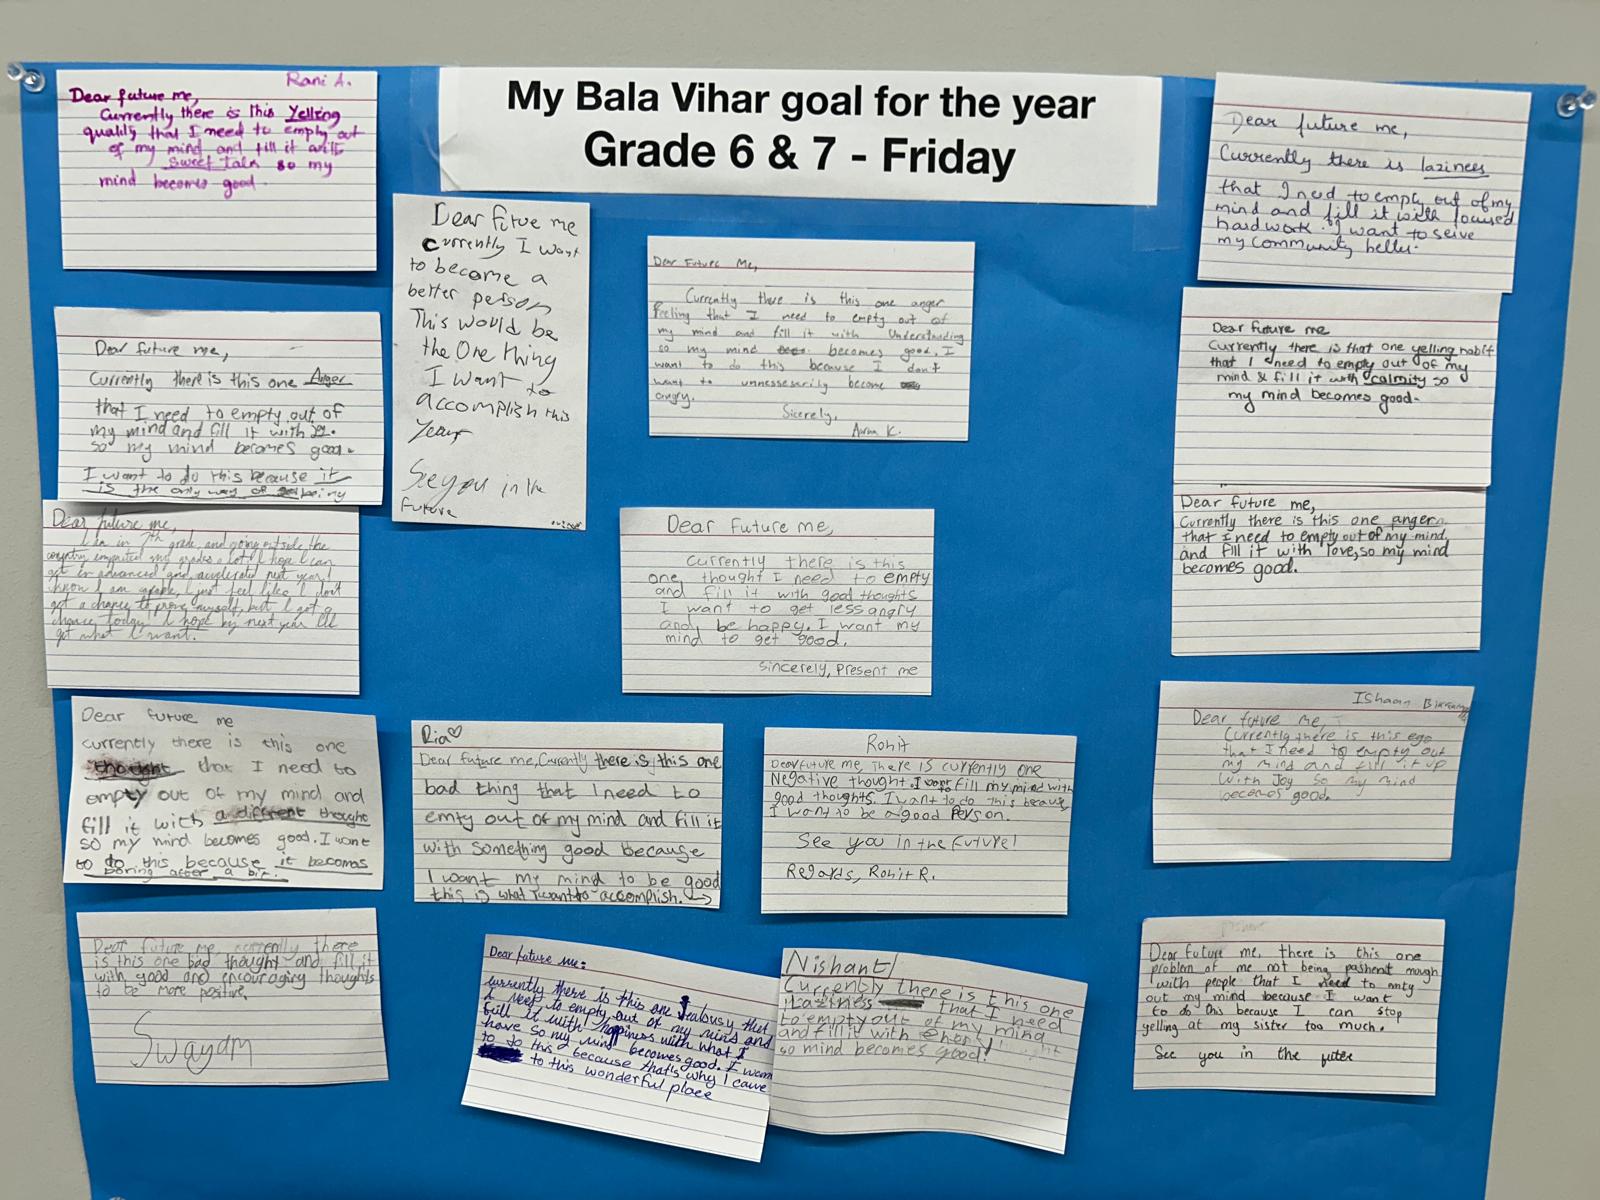 My Bala Vihar goal for the year
Grade 6 & 7 - Friday
Rani A.
Dear future me,
Currently there is this Yelling
quality that I need to empty out
of my mind and fill it with
sweet talk so my
mind becomes good.
Dear future me,
Currently there is this one Anger
that I need to empty out of
my mind and fill it with
so my mind becomes good.
I want to do this because it
is the only way of being
Dear future me,
I am in 7th grade, and going outside the
country my grades a lot! I hope I can
get in advanced and accelerated next year!
I know I am capable, I just feel like I don't
get a chance to prove myself, but I got a
chance today! I hope by next year I'll
get what I want.
Dear future me
currently there is this one
thought that I need to
empty out of my mind and
fill it with a different thought
so my mind becomes good. I want
to do this because it becomes
boring after a bit.
Dear future me, currently there
is this one bad thought and fill it
with good and encouraging thoughts
to be more positive.
Swayam
Dear future me
currently I want
to become a
better person
This would be
the One thing
I want to
accomplish this
year
See you in the
future
Dear Future Me,
Currently there is this one anger
feeling that I need to empty out of
my mind and fill it with Understanding
so my mind becomes good. I
want to do this because I don't
want to unnesseserily become
angry.
Sicerely,
K.
Dear Future me,
Currently there is this
one thought I need to empty
and fill it with good thoughts
I want to get less angry
and be happy. I want my
mind to get good.
sincerely, present me
Ria♡
Dear future me, Currently there is this one
bad thing that I need to
emty out of my mind and fill it
with something good because
I want my mind to be good
this is what I want to accomplish. →
Rohit
Dear future me, There is currently one
Negative thought. I want to fill my mind with
good thoughts. I want to do this because
I want to be a good Person.
See you in the future!
Regards, Rohit R.
Dear future me:
currently there is this one Jealousy that
I need to empty out of my mind and
fill it with happiness with what I
have so my mind becomes good. I want
to do this because that's why I came
to this wonderful place
Nishant
Currently there is this one
Laziness that I need
to empty out of my mind
and fill it with
so mind becomes good!
Dear future me,
Currently there is laziness
that I need to empty out of my
mind and fill it with focused
hardwork. I want to serve
my community better.
Dear future me
Currently there is that one yelling habit
that I need to empty out of my
mind & fill it with calmity so
my mind becomes good.
Dear future me,
Currently there is this one anger
that I need to empty out of my mind,
and fill it with love, so my mind
becomes good.
Ishaan
Dear future me,
Currently there is this ego
that I need to empty out
my mind and fill it up
with Joy so my mind
becomes good.
Dear future me, there is this one
problem of me not being pashent mough
with people that I need to emty
out my mind because I want
to do this because I can stop
yelling at my sister too much.
See you in the futer